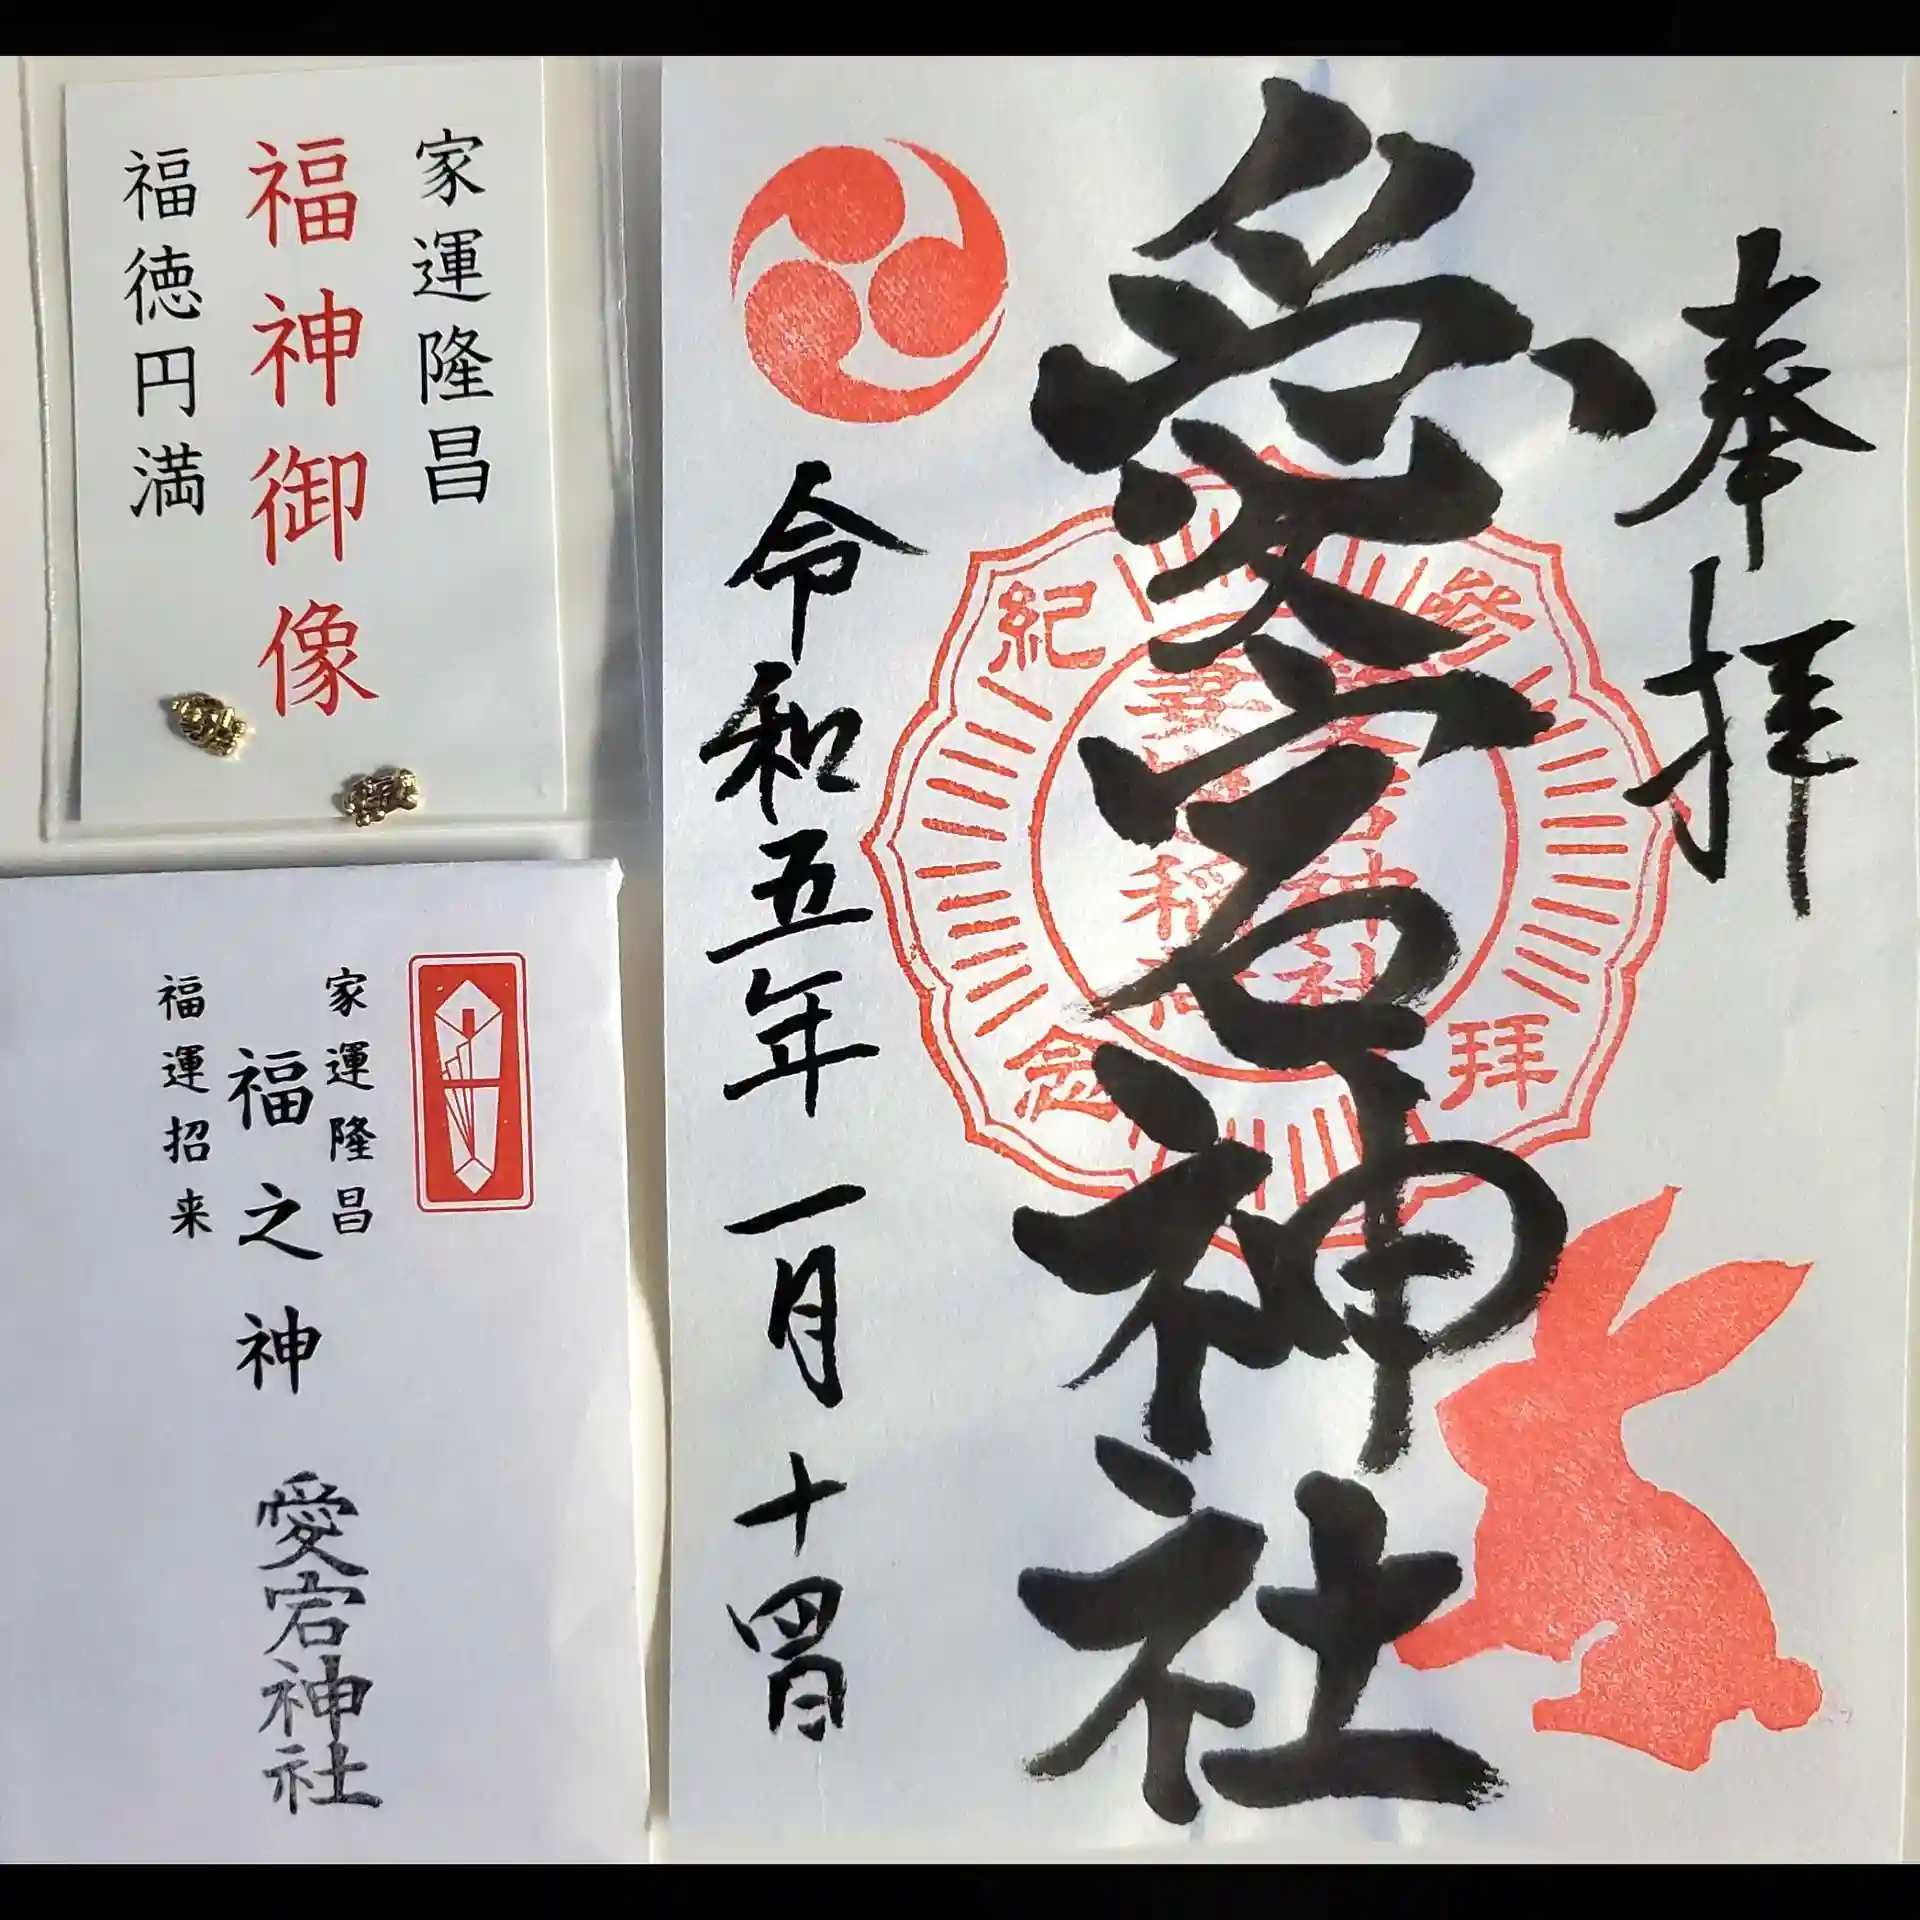 家運隆昌
福神御像
福徳円満
家運隆昌
福之神
福運招来
愛宕神社
奉拝
愛宕神社
令和五年一月十四日
參拜紀念